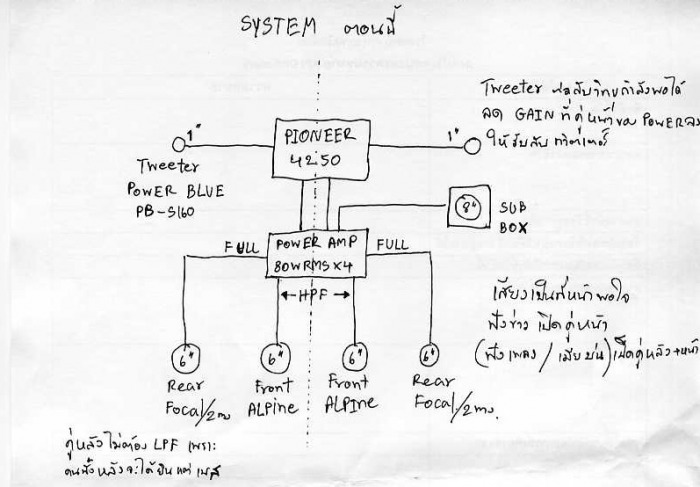 SYSTEM ตอนนี้
Tweeter ต่อกับวิทยุกำลังพอได้
ลด GAIN ที่คู่หน้าของ POWER ลง
ให้รับกับ ทวิตเตอร์
1"
PIONEER
4250
1"
Tweeter
POWER BLUE
PB-S160
8"
SUB
BOX
FULL
POWER AMP
80WRMS×4
FULL
HPF
เสียงเป็นที่น่าพอใจ
ฟังข่าว เปิดคู่หน้า
(ฟังเพลง / เสียงบ่น) เปิดคู่หลัง+หน้า
6" 6" 6" 6"
Rear Front Front Rear
Focal/2ทาง ALPINE ALPINE Focal/2ทาง
คู่หลังไม่ต้อง LPF เพราะ
คนนั่งหลังจะได้ยินแต่เบส